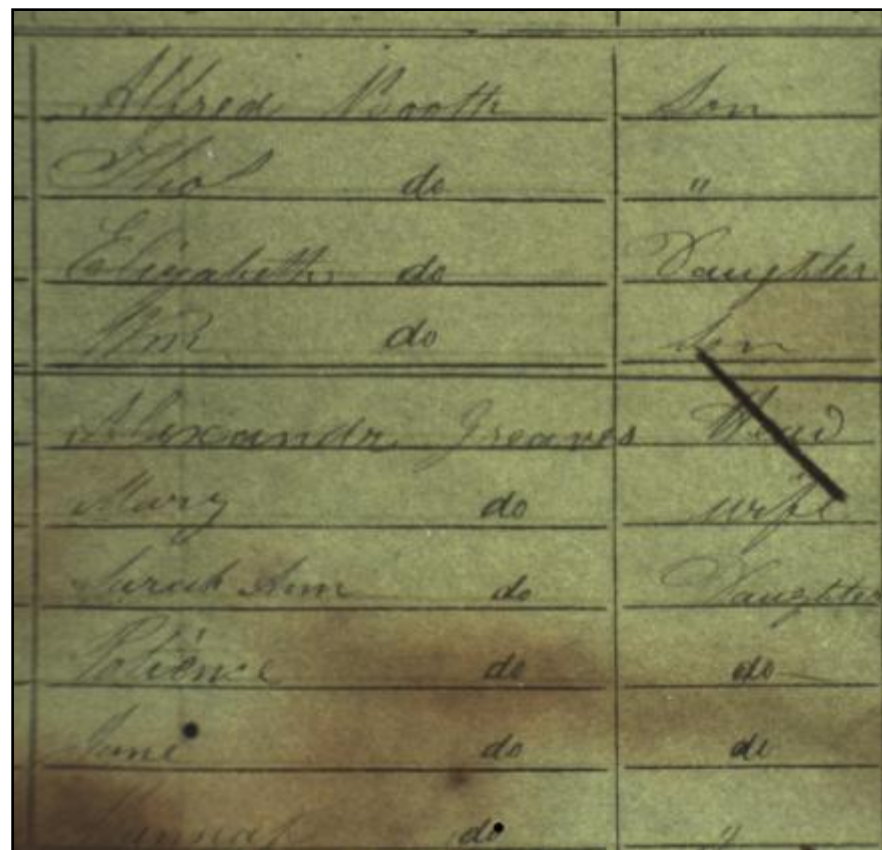 Alfred Booth Son
Thos do "
Elizabeth do Daughter
Wm do Son
Alexandr Greaves Head
Mary do wife
Sarah Ann do Daughter
Patience do do
Jane do do
Hannah do "